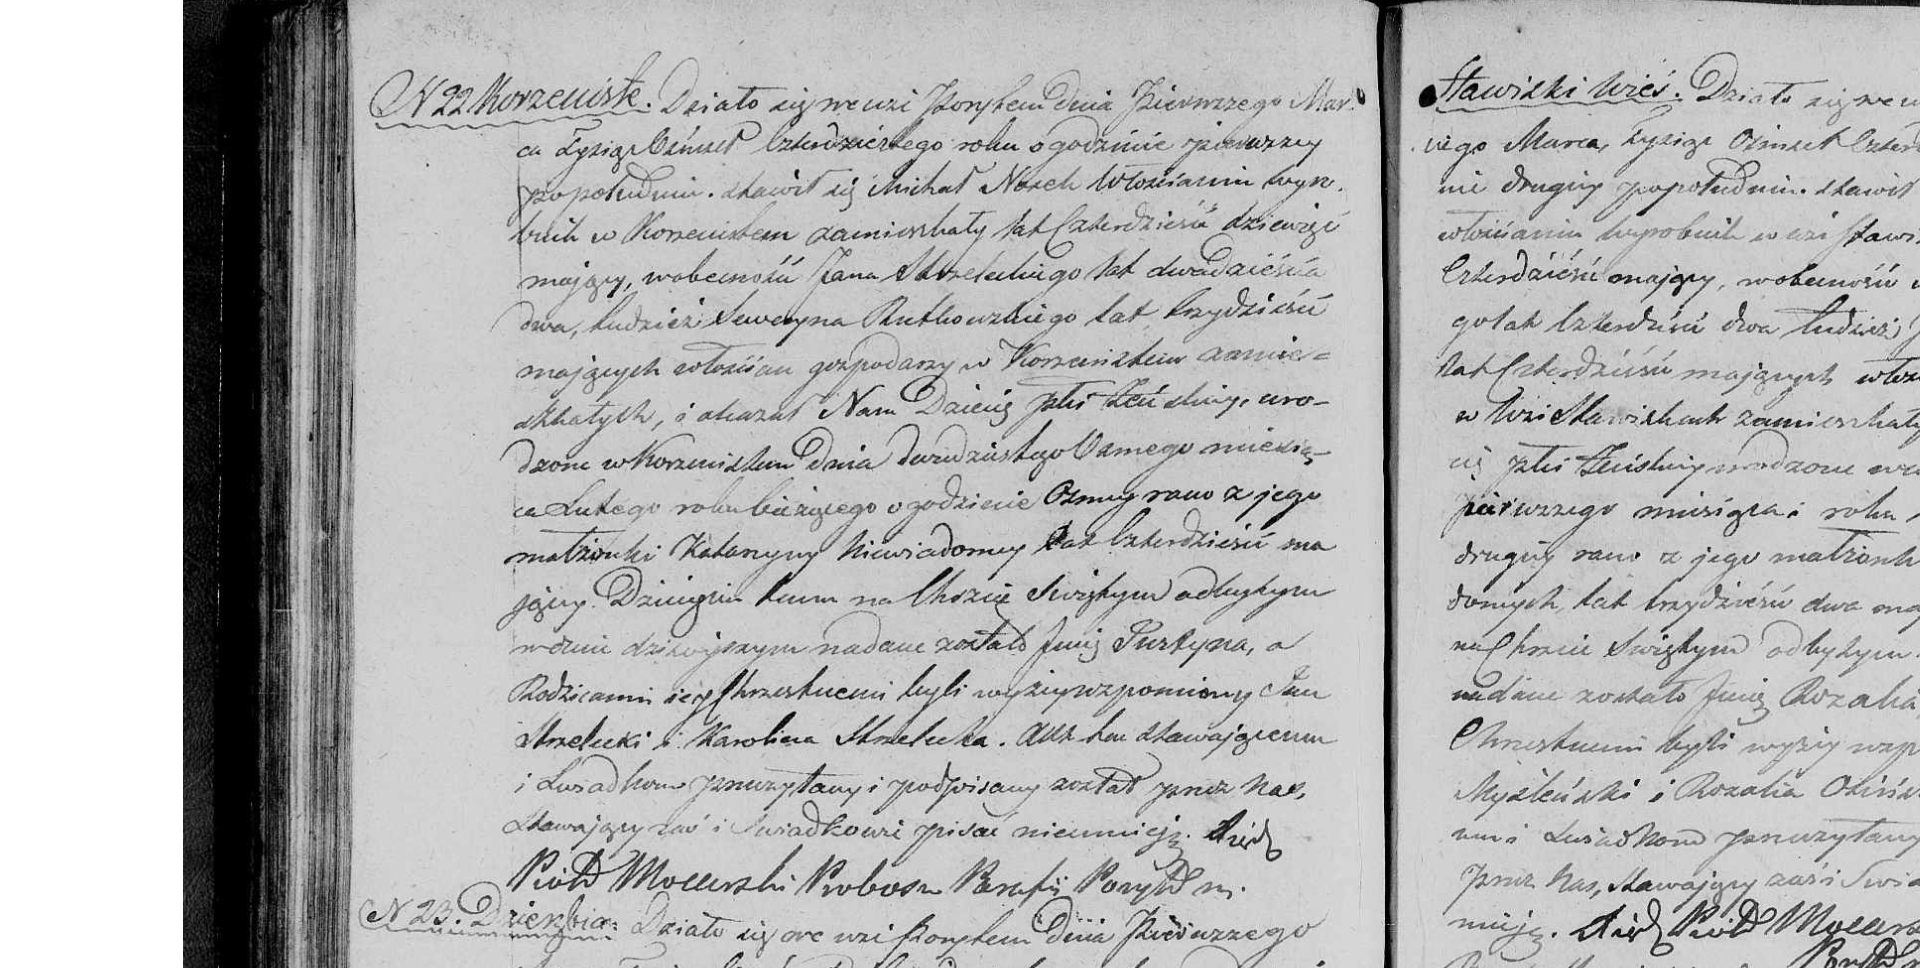 N 22 Korzeniste. Działo się we wsi Porytem dnia Pierwszego Mar-
ca Tysiąc Ośmset Czterdziestego roku o godzinie pierwszey
popołudniu. stawił się Michał Włościanin wyro-
bnik w Korzenistem zamieszkały lat Czterdzieści dziewięć
mający, w obecności Jana Strzeleckiego lat dwadzieścia
dwa, tudzież Seweryna Rutkowskiego lat trzydzieści
mających włościan gospodarzy w Korzenistem zamie=
szkałych, i okazał Nam Dziecię płci Żeńskiey, uro-
dzone w Korzenistem dnia dwudziestego Osmego miesią-
ca Lutego roku bieżącego o godzinie Osmey rano z jego
małżonki Katarzyny Niewiadomey lat Czterdzieści ma
jącey. Dziecięciu temu na Chrzcie Swiętym odbytym
w dniu dzisieyszym nadane zostało Imię Justyna, a
Rodzicami iey Chrzestnemi byli wyżey wzpomniony Jan
Strzelecki i Karolina Strzelecka. Akt ten stawającemu
i Swiadkom przeczytany i podpisany został przez Nas,
stawający zaś i Swiadkowie pisać nieumieją.
Piotr Mocarski Proboszcz Parafii Porytey m.
N 23. Dzierzbia. Działo się we wsi Porytem dnia Pierwszego
Stawiski Wieś. Działo się we w
Marca, Tysiąc Ośmset Czterd
nie drugiey popołudniu. stawił
włościanin wyrobnik w wsi Stawi
Czterdzieści mający, w obecności
go lat Czterdzieści dwa tudzież J
lat Czterdzieści mających włoś
w Wsi Stawiskach zamieszkały
cię płci Żeńskiey urodzone we w
pierwszego miesiąca i roku
drugiey rano z jego małżonk
domych lat trzydzieści dwa ma
na Chrzcie Swiętym odbytym
nadane zostało Imię Rozalia
Chrzestnemi byli wyżey wzp
Myśleński i Rozalia Osińsk
mu i Swiadkom przeczytany
przez Nas, stawający zaś i Swia
mieją. Piotr Mocars